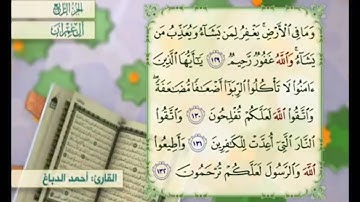 الجزء الرابع
آل عمران
وَمَا فِي ٱلْأَرْضِ يَغْفِرُ لِمَن يَشَآءُ وَيُعَذِّبُ مَن
يَشَآءُ وَٱللَّهُ غَفُورٌ رَّحِيمٌ ١٢٩ يَٰٓأَيُّهَا ٱلَّذِينَ
ءَامَنُوا۟ لَا تَأْكُلُوا۟ ٱلرِّبَوٰٓا۟ أَضْعَٰفًا مُّضَٰعَفَةً
وَٱتَّقُوا۟ ٱللَّهَ لَعَلَّكُمْ تُفْلِحُونَ ١٣٠ وَٱتَّقُوا۟
ٱلنَّارَ ٱلَّتِىٓ أُعِدَّتْ لِلْكَٰفِرِينَ ١٣١ وَأَطِيعُوا۟
ٱللَّهَ وَٱلرَّسُولَ لَعَلَّكُمْ تُرْحَمُونَ ١٣٢
القارئ: أحمد الدباغ